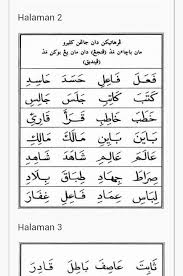 Halaman 2
ڤرهاتيكن دان جاڠن كليرو
مان باچاءن مد (ڤنجڠ) دان مان يڠ بوكن مد
(ڤينديق)
فَعَلَ فَاعِل حَسَدَ حَاسِد
كَتَبَ كَاتِب جَلَسَ جَالِس
خَطَبَ خَاطِب قَرَأَ قَارِئ
بَايَنَ بَايِن مَالَكَ مَالِك
عَالَم عَالِم شَاهَدَ شَاهِد
صِرَاط جِهَاد طِبَاق بِلَاد
لِبَاس عِمَاد فَاعِل غِفَار
Halaman 3
ثَابِتَ عَاصِفَ بَاطِلَ قَادِرَ